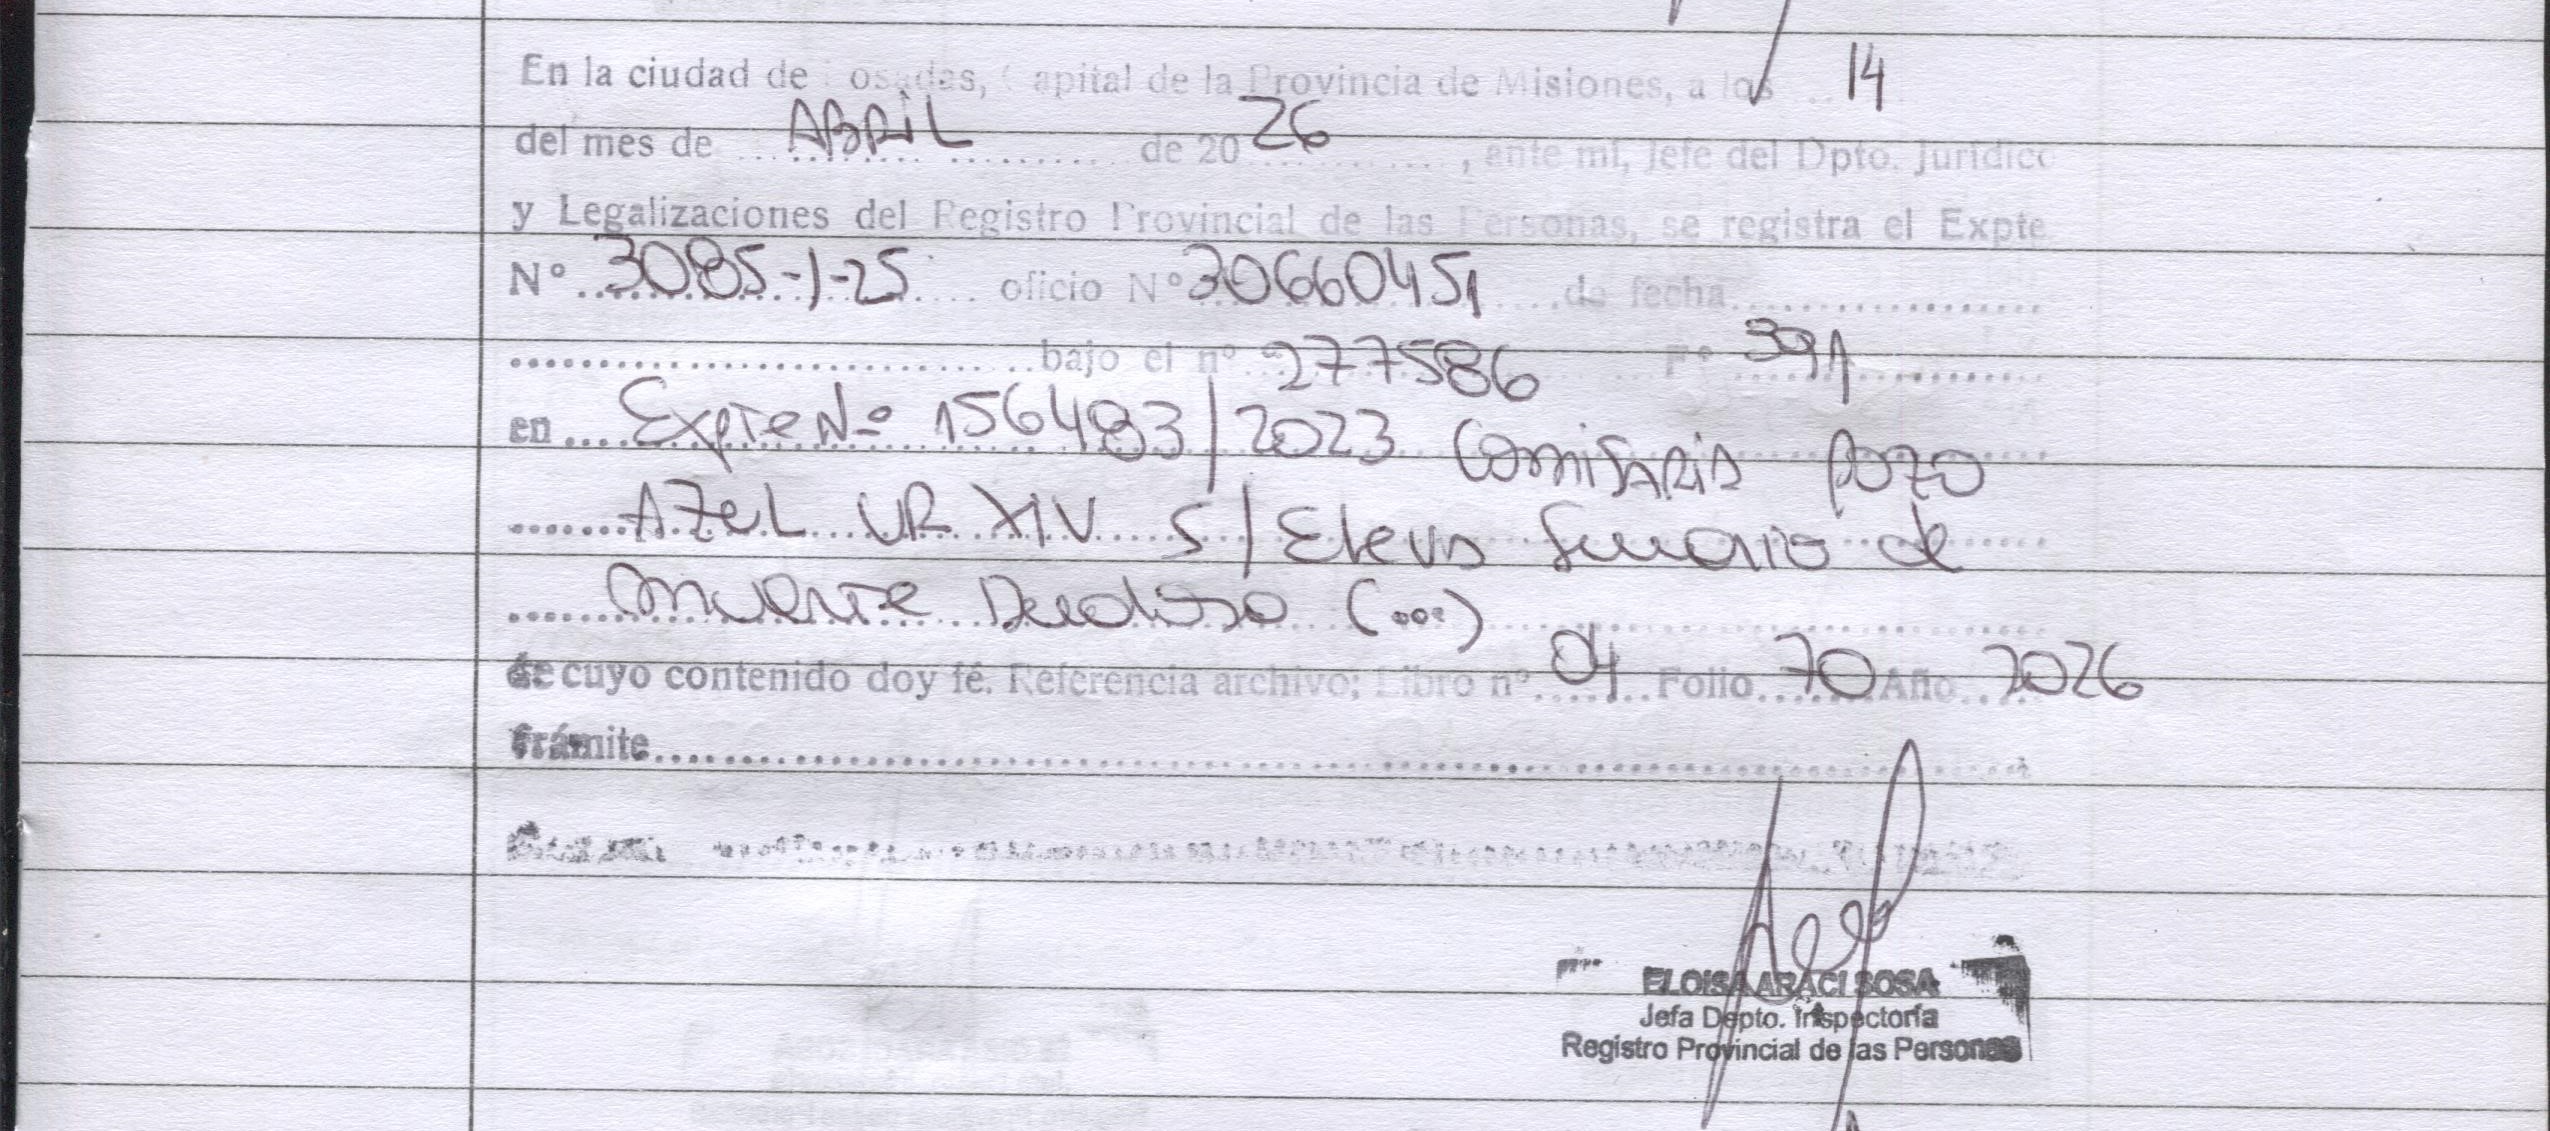 En la ciudad de Posadas, Capital de la Provincia de Misiones, a los 14
del mes de ABRIL de 2026, ante mi, Jefe del Dpto. Jurídico
y Legalizaciones del Registro Provincial de las Personas, se registra el Expte
Nº 3085-1-25 oficio Nº 30660451 de fecha
bajo el nº 277586 Fº 391
en Expte Nº 156483/2023 Comisaria Pozo
AZUL UR XIV S/ Eleva Sumario de
Muerte Dudosa (...)
de cuyo contenido doy fé. Referencia archivo; Libro nº 04 Folio 70 Año 2026
trámite
ELOISA ARACI SOSA
Jefa Depto. Inspectoría
Registro Provincial de las Personas